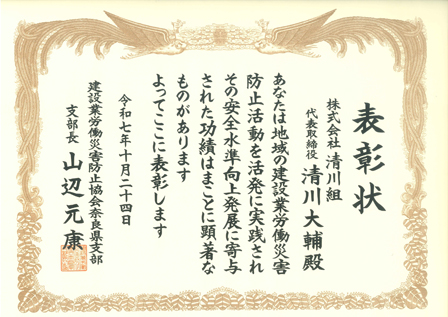 表彰状
株式会社 清川組
代表取締役 清川大輔殿
あなたは地域の建設業労働災害
防止活動を活発に実践され
その安全水準向上発展に寄与
された功績はまことに顕著な
ものがあります
よってここに表彰します
令和七年十月二十四日
建設業労働災害防止協会奈良県支部
支部長 山辺元康